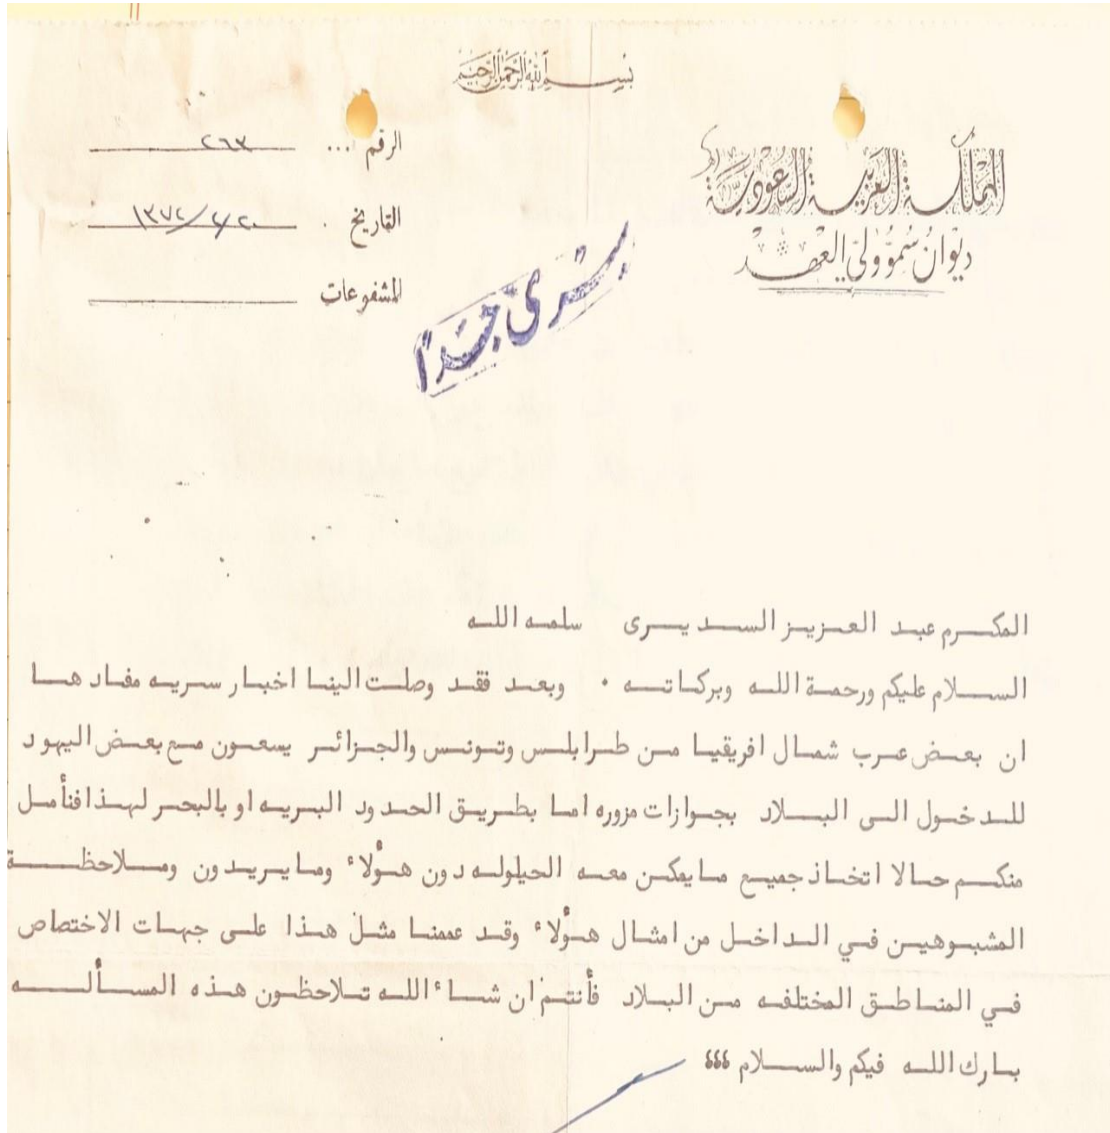 بسم الله الرحمن الرحيم
المملكة العربية السعودية
ديوان سمو ولي العهد
الرقم ... ٢٦٣
التاريخ ١٣٧٢/٤/٢٠
المشفوعات
سرى جدًا
المكرم عبد العزيز السديرى سلمه الله
السلام عليكم ورحمة الله وبركاته . وبعد فقد وصلت الينا اخبار سريه مفادها
ان بعض عرب شمال افريقيا من طرابلس وتونس والجزائر يسعون مع بعض اليهود
للدخول الى البلاد بجوازات مزوره اما بطريق الحدود البريه او بالبحر لهذا فنأمل
منكم حالا اتخاذ جميع مايمكن معه الحيلوله دون هؤلاء ومايريدون وملاحظة
المشبوهين في الداخل من امثال هؤلاء وقد عممنا مثل هذا على جهات الاختصاص
في المناطق المختلفه من البلاد فأنتم ان شاء الله تلاحظون هذه المسألـه
بارك الله فيكم والسلام ؛؛؛